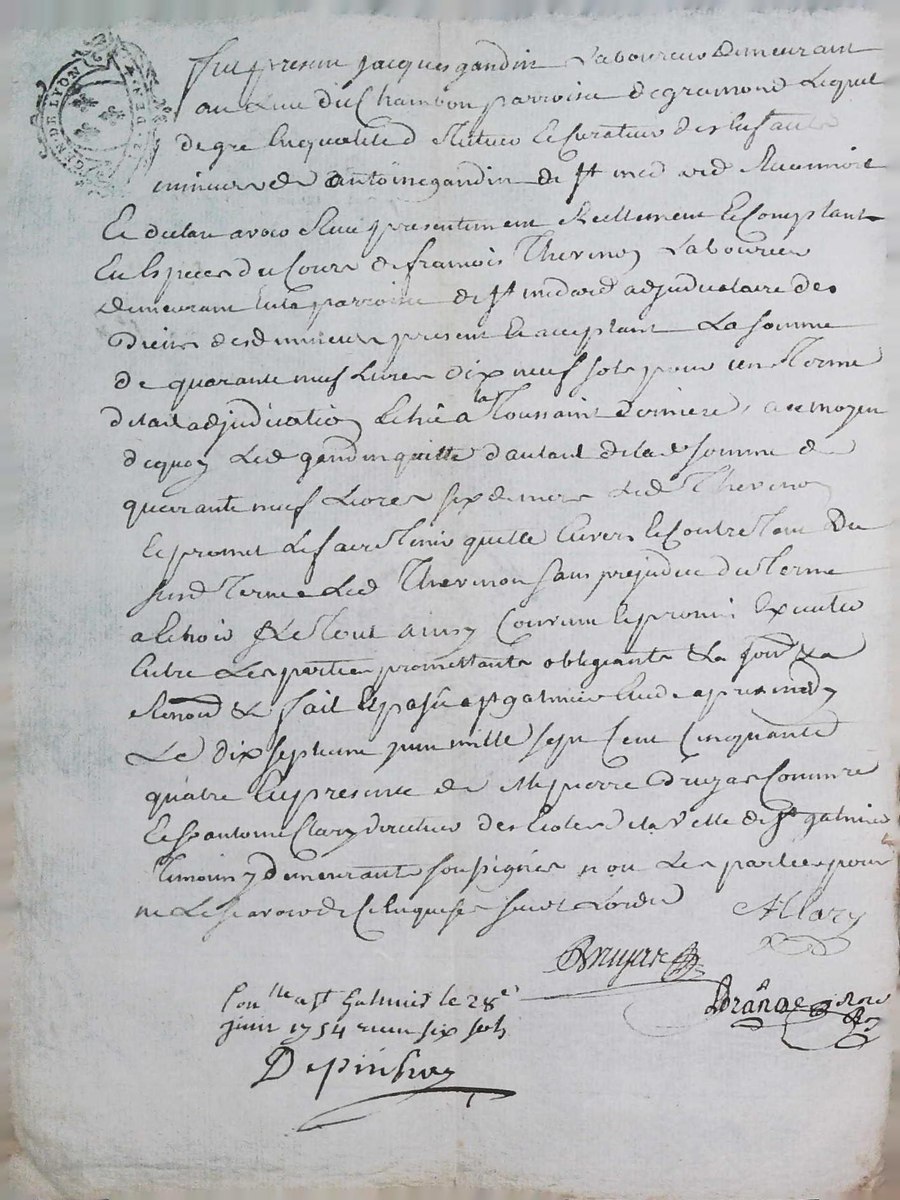 GEN. DE LYON
Fut présent Jacques gandin Laboureur Demeurant
au Lieu du Chambon parroisse de gramond Lequel
de gre En qualité de Tuteur Et Curateur des Enfants
mineurs de antoine gandin de st medard
Et declare avoir Reçu présentement Réellement Et Comptant
En Espèces du Cours de francois Thevenon Laboureur
demeurant En la parroisse de st medard adjudicataire des
desd mineurs présent Et acceptant La somme
de quarante neuf Livres dix neuf sols pour un Terme
de lad adjudication Echu a la Toussaint derniere, au moyen
dequoy Led gandin quitte d'autant de lad somme de
quarante neuf Livres six deniers Led Thevenon
Et promet Le faire Tenir quitte Envers Et Contre Tous du
susd Terme Led Thevenon sans prejudice du Terme
a Echoir Le Tout ainsy Convenu Et promis Executer
Entre Les parties promettants obligeants &
Renond & fait Et passé a st galmier Etude apres midy
Le dix septieme juin mille sept Cent Cinquante
quatre En presence de Me pierre
Et sr antoine Clary directeur des Ecoles de la Ville de st galmier
Témoins y demeurants soussignés non Les parties pour
ne Le scavoir de Ce Enquises suivt L'ordce
AClary
Con.lle a st Galmier le 28e
juin 1754 six sols